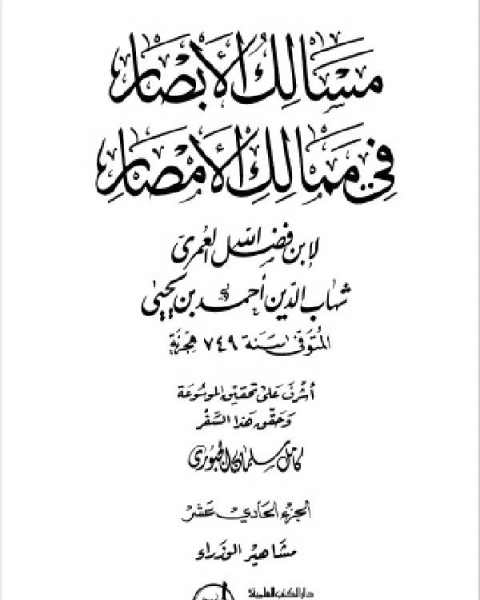 مسالك الأبصار
في ممالك الأمصار
لابن فضل الله العمري
شهاب الدين أحمد بن يحيى
المتوفى سنة ٧٤٩ هجرية
أشرف على تحقيق الموسوعة
وحقق هذا السفر
كامل سلمان الجبوري
الجزء الحادي عشر
مشاهير الوزراء
دار الكتب العلمية